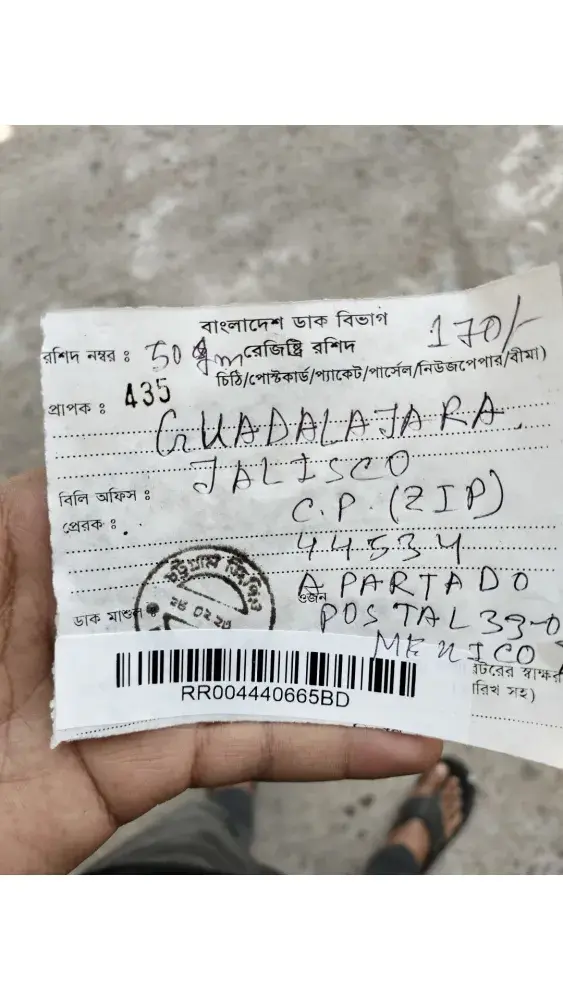 বাংলাদেশ ডাক বিভাগ
170/-
রশিদ নম্বর : 50 gm রেজিষ্ট্রি রশিদ
চিঠি/পোস্টকার্ড/প্যাকেট/পার্সেল/নিউজপেপার/বীমা)
প্রাপক : 435
GUADALAJARA.
JALISCO
বিলি অফিস :
C.P. (ZIP)
প্রেরক :
44534
APARTADO
ওজন
POSTAL 39-0
ডাক মাশুল
MEXICO
২৮ ০২ ২৩
RR004440665BD
স্বাক্ষর
সহ)